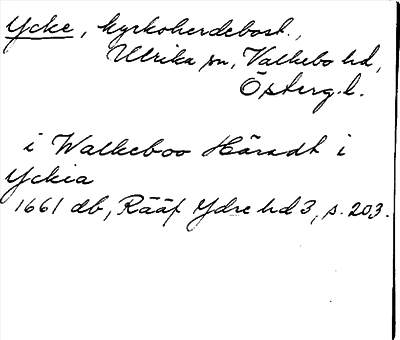 Ycke, kyrkoherdebost.,
Ulrika sn, Valkebo hd,
Östergl.
i Walkeboo Häradt i
Yckia
1661 db, Rääf Ydre hd 3, s. 203.